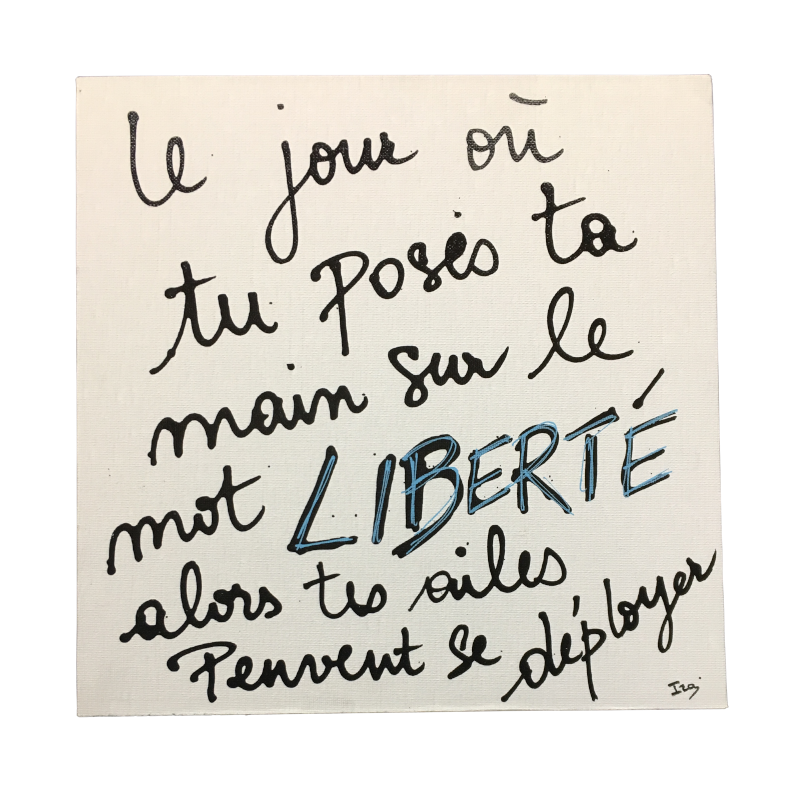 Le jour où
tu poses ta
main sur le
mot LIBERTÉ
alors tes ailes
Peuvent se déployer